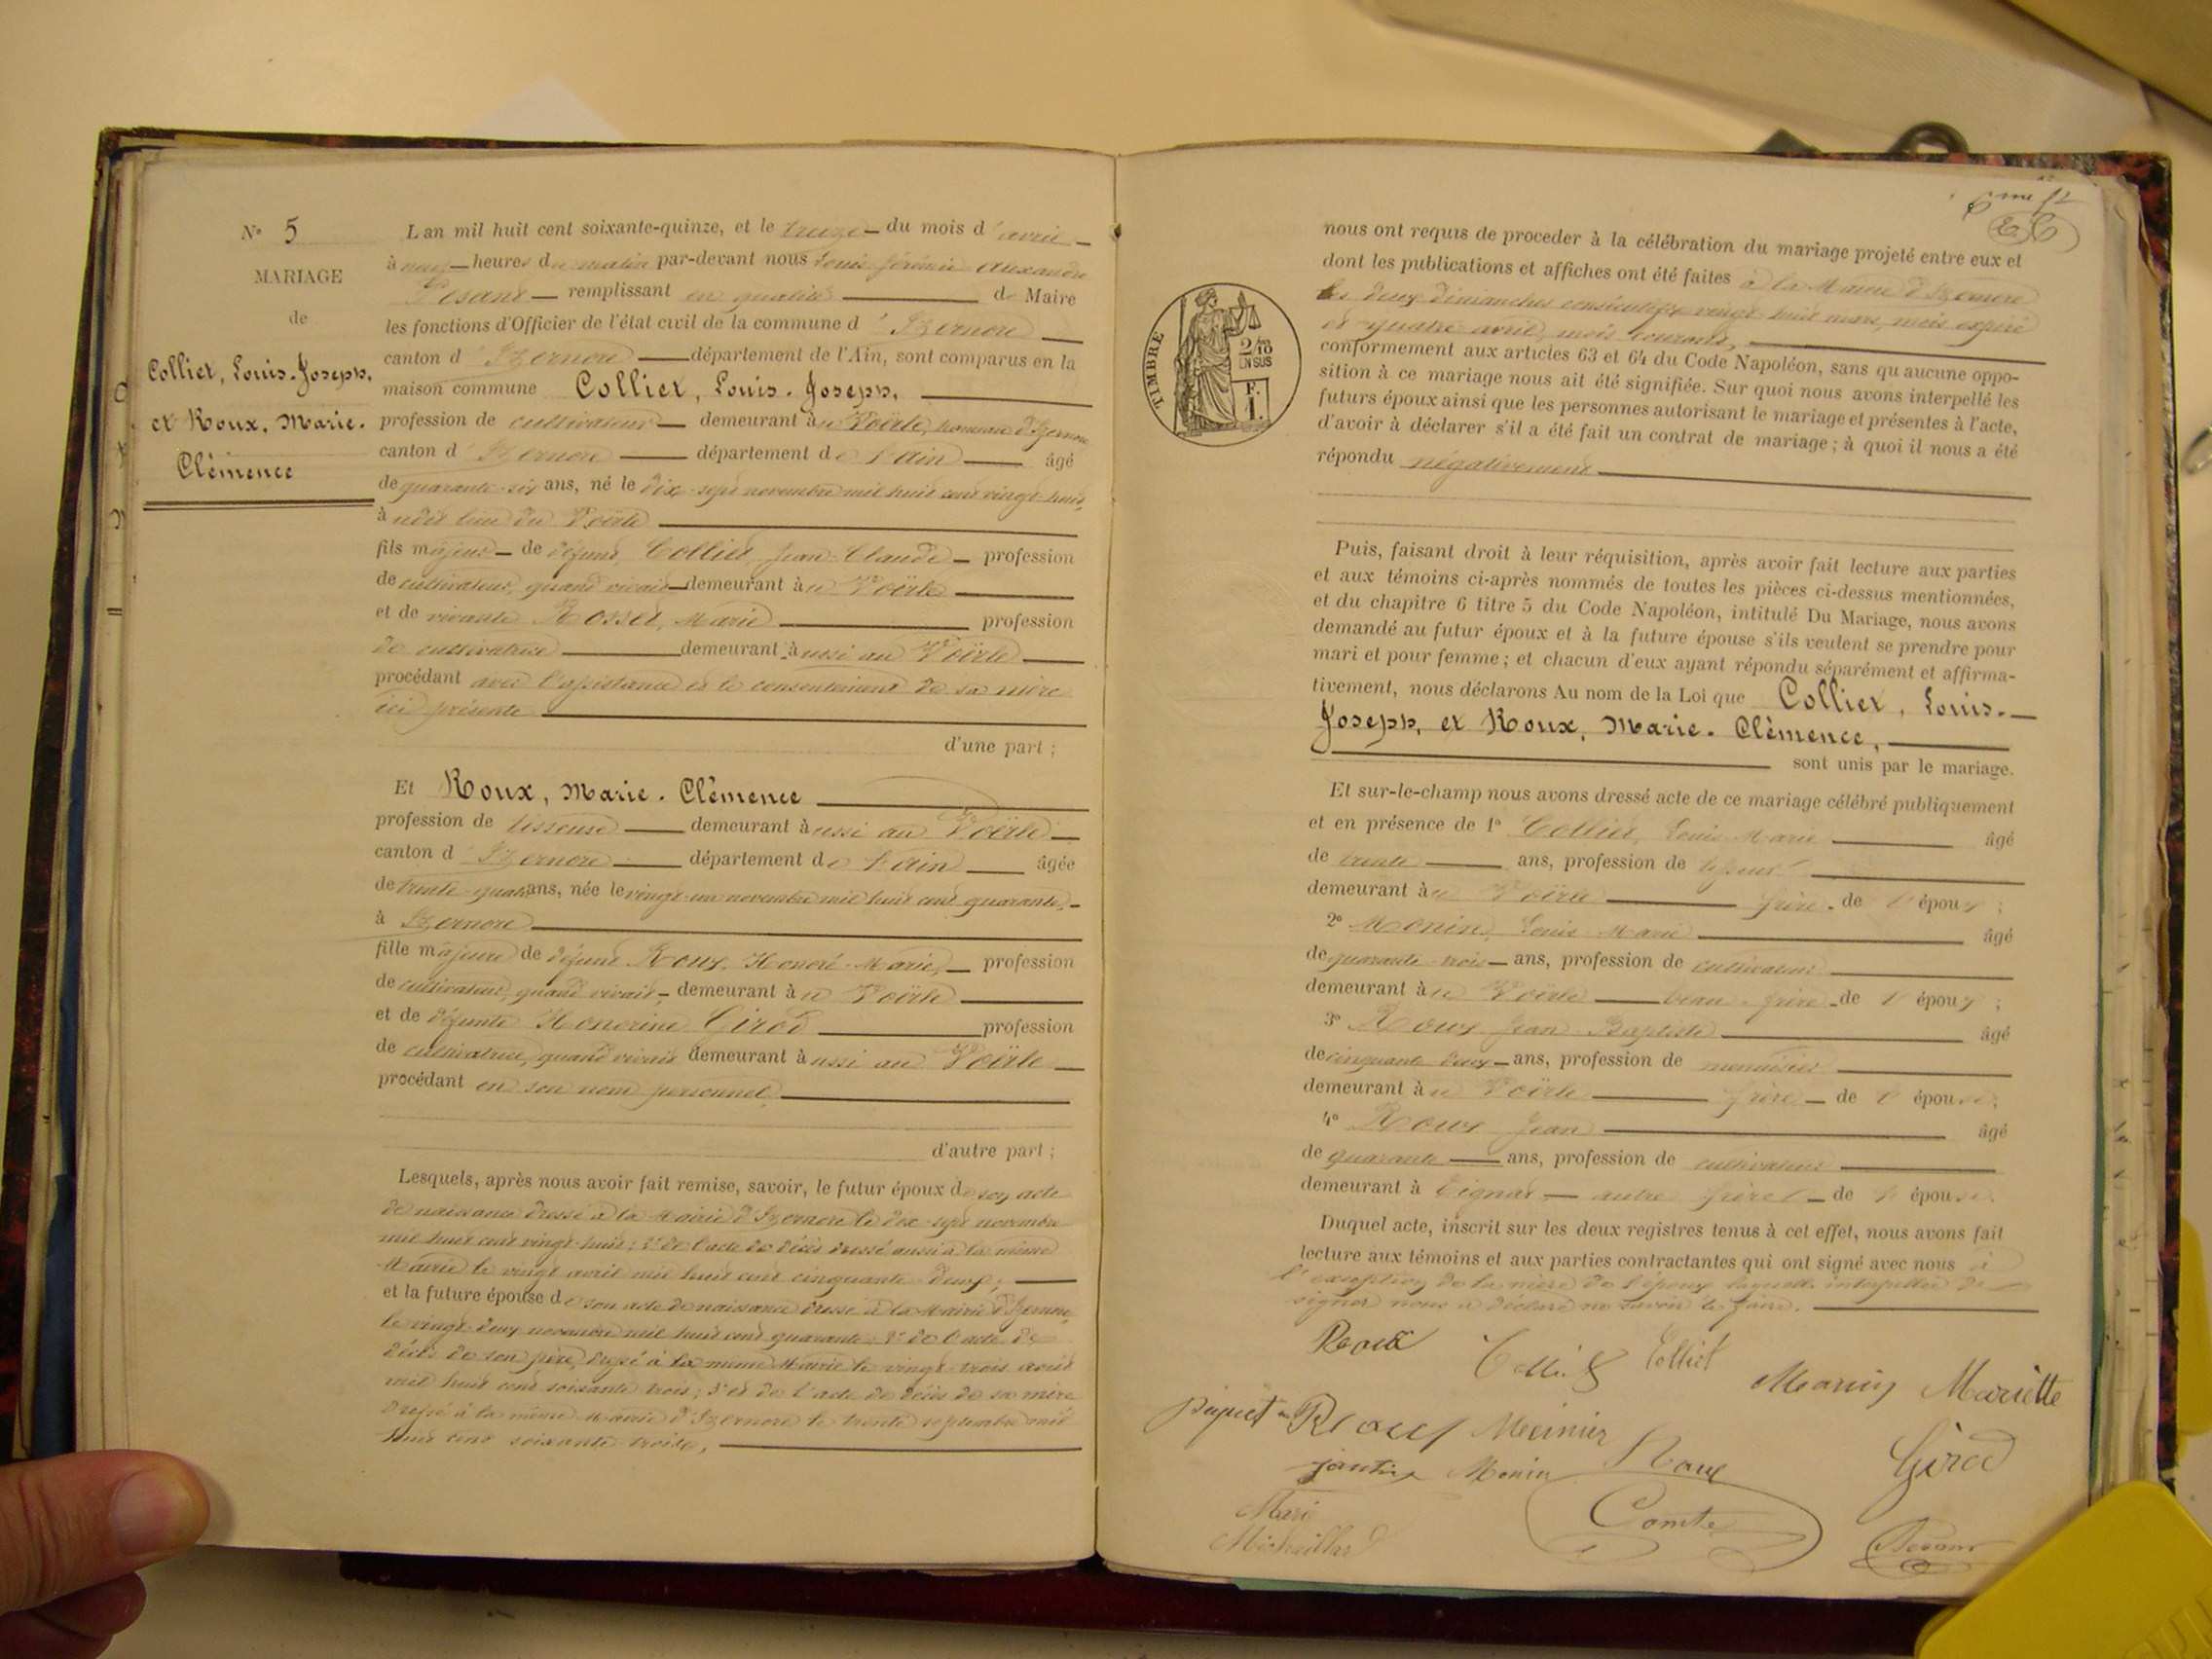 N° 5
MARIAGE
de
Colliet, Louis-Joseph,
et Roux, Marie-
Clémence
L'an mil huit cent soixante-quinze, et le treize du mois d'avril
à neuf heures du matin par-devant nous Louis Jérémie Alexandre
remplissant en qualité de Maire
les fonctions d'Officier de l'état civil de la commune d'Izernore
canton d'Izernore département de l'Ain, sont comparus en la
maison commune Colliet, Louis-Joseph,
profession de cultivateur demeurant au Voërle, commune d'Izernore
canton d'Izernore département de l'Ain âgé
de quarante-six ans, né le dix-sept novembre mil huit cent vingt-huit,
à udit lieu du Voërle
fils majeur de défunt Colliet, Jean-Claude profession
de cultivateur, quand vivait demeurant au Voërle
et de vivante Rosset, Marie profession
de cultivatrice demeurant aussi au Voërle
procédant avec l'assistance et le consentement de sa mère
ici présente
d'une part ;
Et Roux, Marie-Clémence
profession de tisseuse demeurant aussi au Voërle
canton d'Izernore département de l'Ain âgée
de trente-quatre ans, née le vingt-un novembre mil huit cent quarante,
à Izernore
fille majeure de défunt Roux, Honoré-Marie, profession
de cultivateur, quand vivait demeurant au Voërle
et de défunte Honorine Girod profession
de cultivatrice, quand vivait demeurant aussi au Voërle
procédant en son nom personnel
d'autre part ;
Lesquels, après nous avoir fait remise, savoir, le futur époux de son acte
de naissance dressé à la Mairie d'Izernore le dix-sept novembre
mil huit cent vingt-huit ; 2° de l'acte de décès dressé aussi à la même
Mairie le vingt avril mil huit cent cinquante-deux ;
et la future épouse de son acte de naissance dressé à la Mairie d'Izernore,
le vingt-deux novembre mil huit cent quarante ; 2° de l'acte de
décès de son père, dressé à la même Mairie le vingt-trois août
mil huit cent soixante-trois ; 3° et de l'acte de décès de sa mère
dressé à la même Mairie d'Izernore le trente septembre mil
huit cent soixante-trois,
TIMBRE
2/10
EN SUS
F.
1.
nous ont requis de procéder à la célébration du mariage projeté entre eux et
dont les publications et affiches ont été faites à la Mairie d'Izernore
les deux dimanches consécutifs vingt-huit mars, mois expiré
et quatre avril, mois courant,
conformément aux articles 63 et 64 du Code Napoléon, sans qu'aucune oppo-
sition à ce mariage nous ait été signifiée. Sur quoi nous avons interpellé les
futurs époux ainsi que les personnes autorisant le mariage et présentes à l'acte,
d'avoir à déclarer s'il a été fait un contrat de mariage ; à quoi il nous a été
répondu négativement
Puis, faisant droit à leur réquisition, après avoir fait lecture aux parties
et aux témoins ci-après nommés de toutes les pièces ci-dessus mentionnées,
et du chapitre 6 titre 5 du Code Napoléon, intitulé Du Mariage, nous avons
demandé au futur époux et à la future épouse s'ils veulent se prendre pour
mari et pour femme ; et chacun d'eux ayant répondu séparément et affirma-
tivement, nous déclarons Au nom de la Loi que Colliet, Louis-
Joseph, et Roux, Marie-Clémence,
sont unis par le mariage.
Et sur-le-champ nous avons dressé acte de ce mariage célébré publiquement
et en présence de 1° Colliet, Louis-Marie âgé
de trente ans, profession de
demeurant au Voërle frère de l'époux ;
2° Monin, Louis-Marie âgé
de quarante-trois ans, profession de cultivateur
demeurant au Voërle beau-frère de l'époux ;
3° Roux Jean-Baptiste âgé
de cinquante-deux ans, profession de menuisier
demeurant au Voërle frère de l'épouse ;
4° Roux Jean âgé
de quarante ans, profession de cultivateur
demeurant à Tignat autre frère de l'épouse.
Duquel acte, inscrit sur les deux registres tenus à cet effet, nous avons fait
lecture aux témoins et aux parties contractantes qui ont signé avec nous à
l'exception de la mère de l'époux laquelle interpellée de
signer nous a déclaré ne savoir le faire.
Roux Colliet Colliet Monin Mariette
Roux Meunier
Monin Roux Girod
Mari
Comte